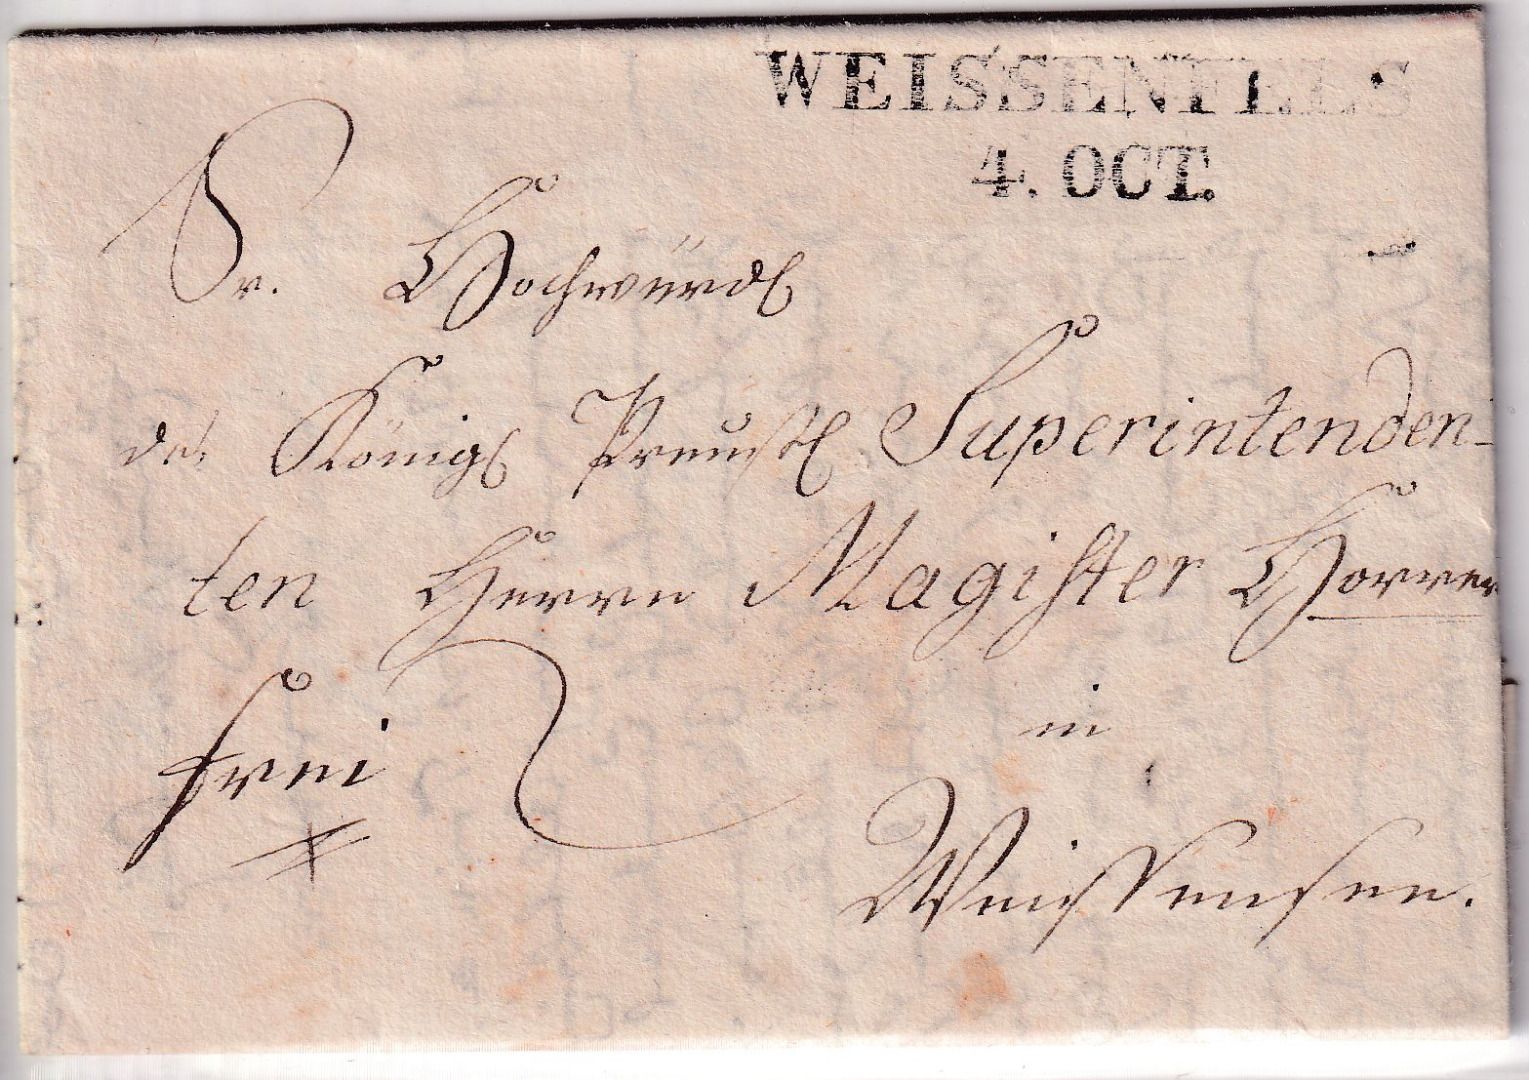 WEISSENFELS
4. OCT.
Sr. Hochwürd
des Königl Preuß Superintenden-
ten Herrn Magister Horrer
in
frei
Weissensee.